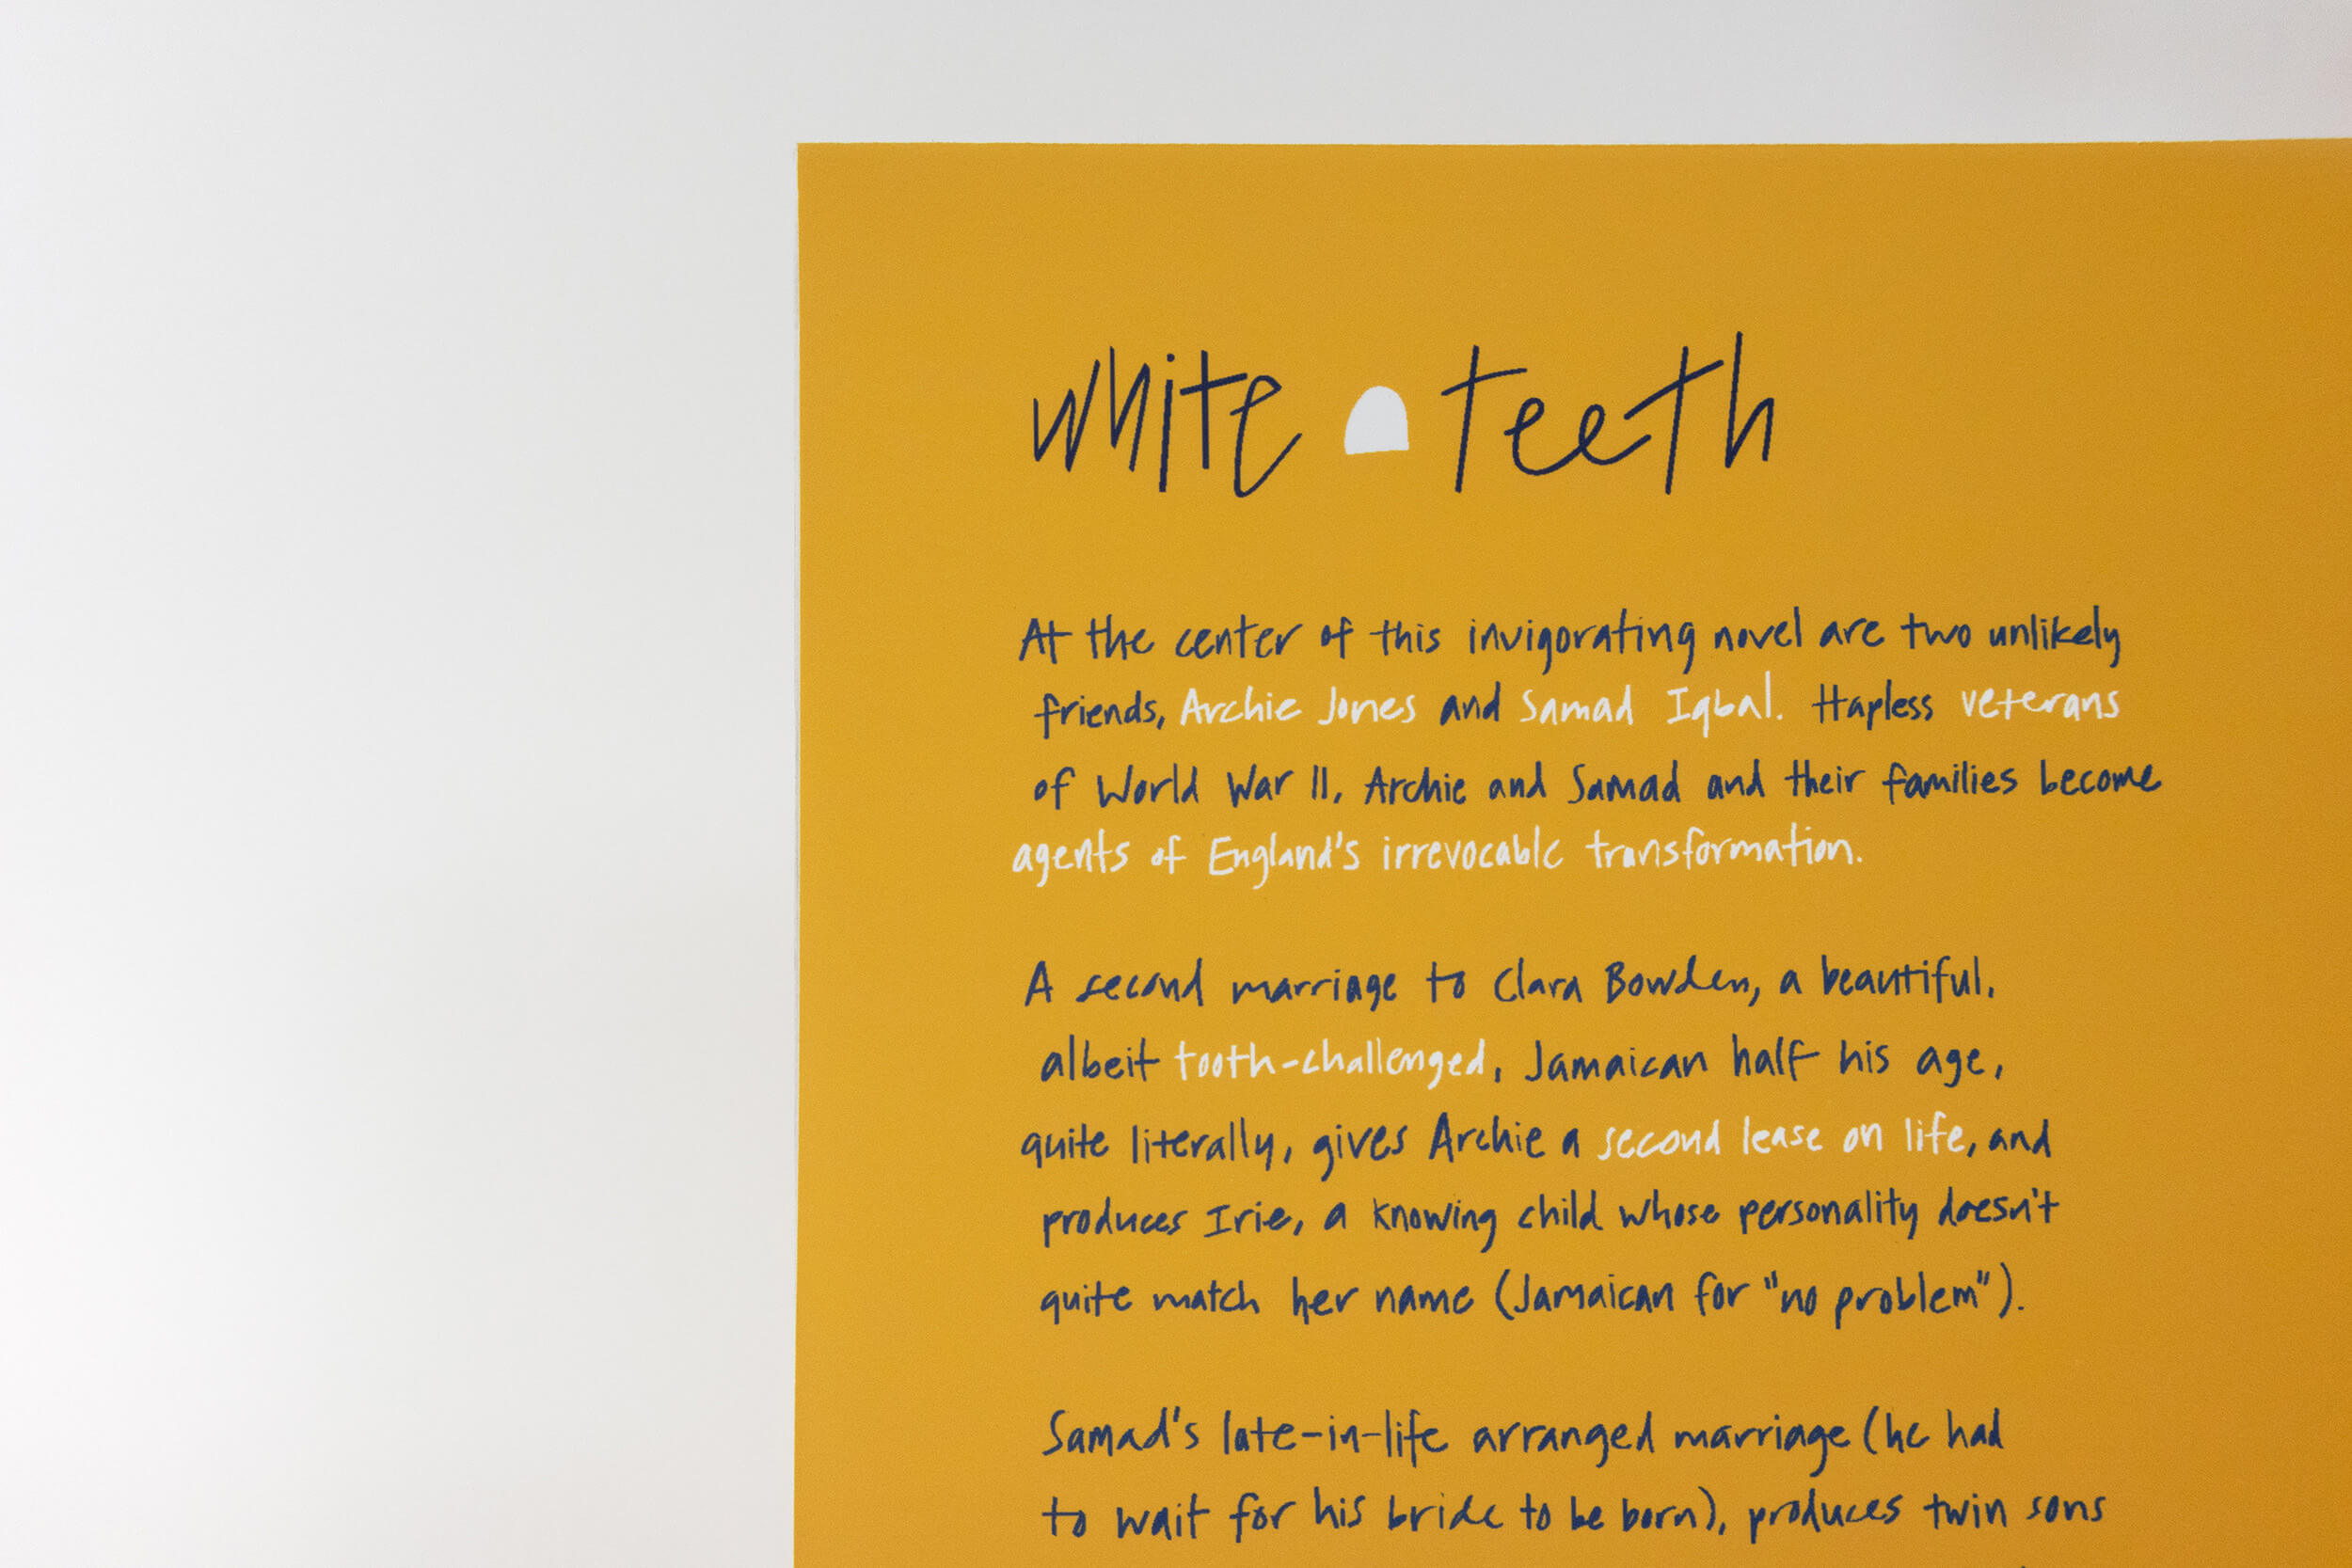 white teeth
At the center of this invigorating novel are two unlikely
friends, Archie Jones and Samad Iqbal. Hapless veterans
of World War II, Archie and Samad and their families become
agents of England's irrevocable transformation.
A second marriage to Clara Bowden, a beautiful,
albeit tooth-challenged, Jamaican half his age,
quite literally, gives Archie a second lease on life, and
produces Irie, a knowing child whose personality doesn't
quite match her name (Jamaican for "no problem").
Samad's late-in-life arranged marriage (he had
to wait for his bride to be born), produces twin sons